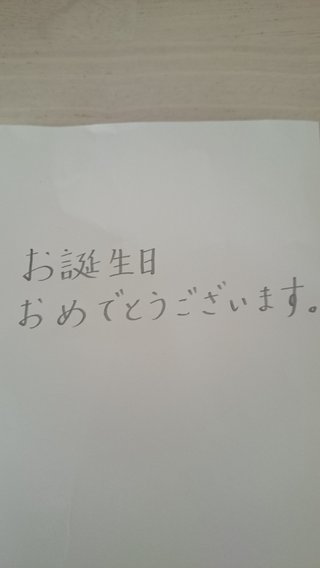 お誕生日
おめでとうございます。